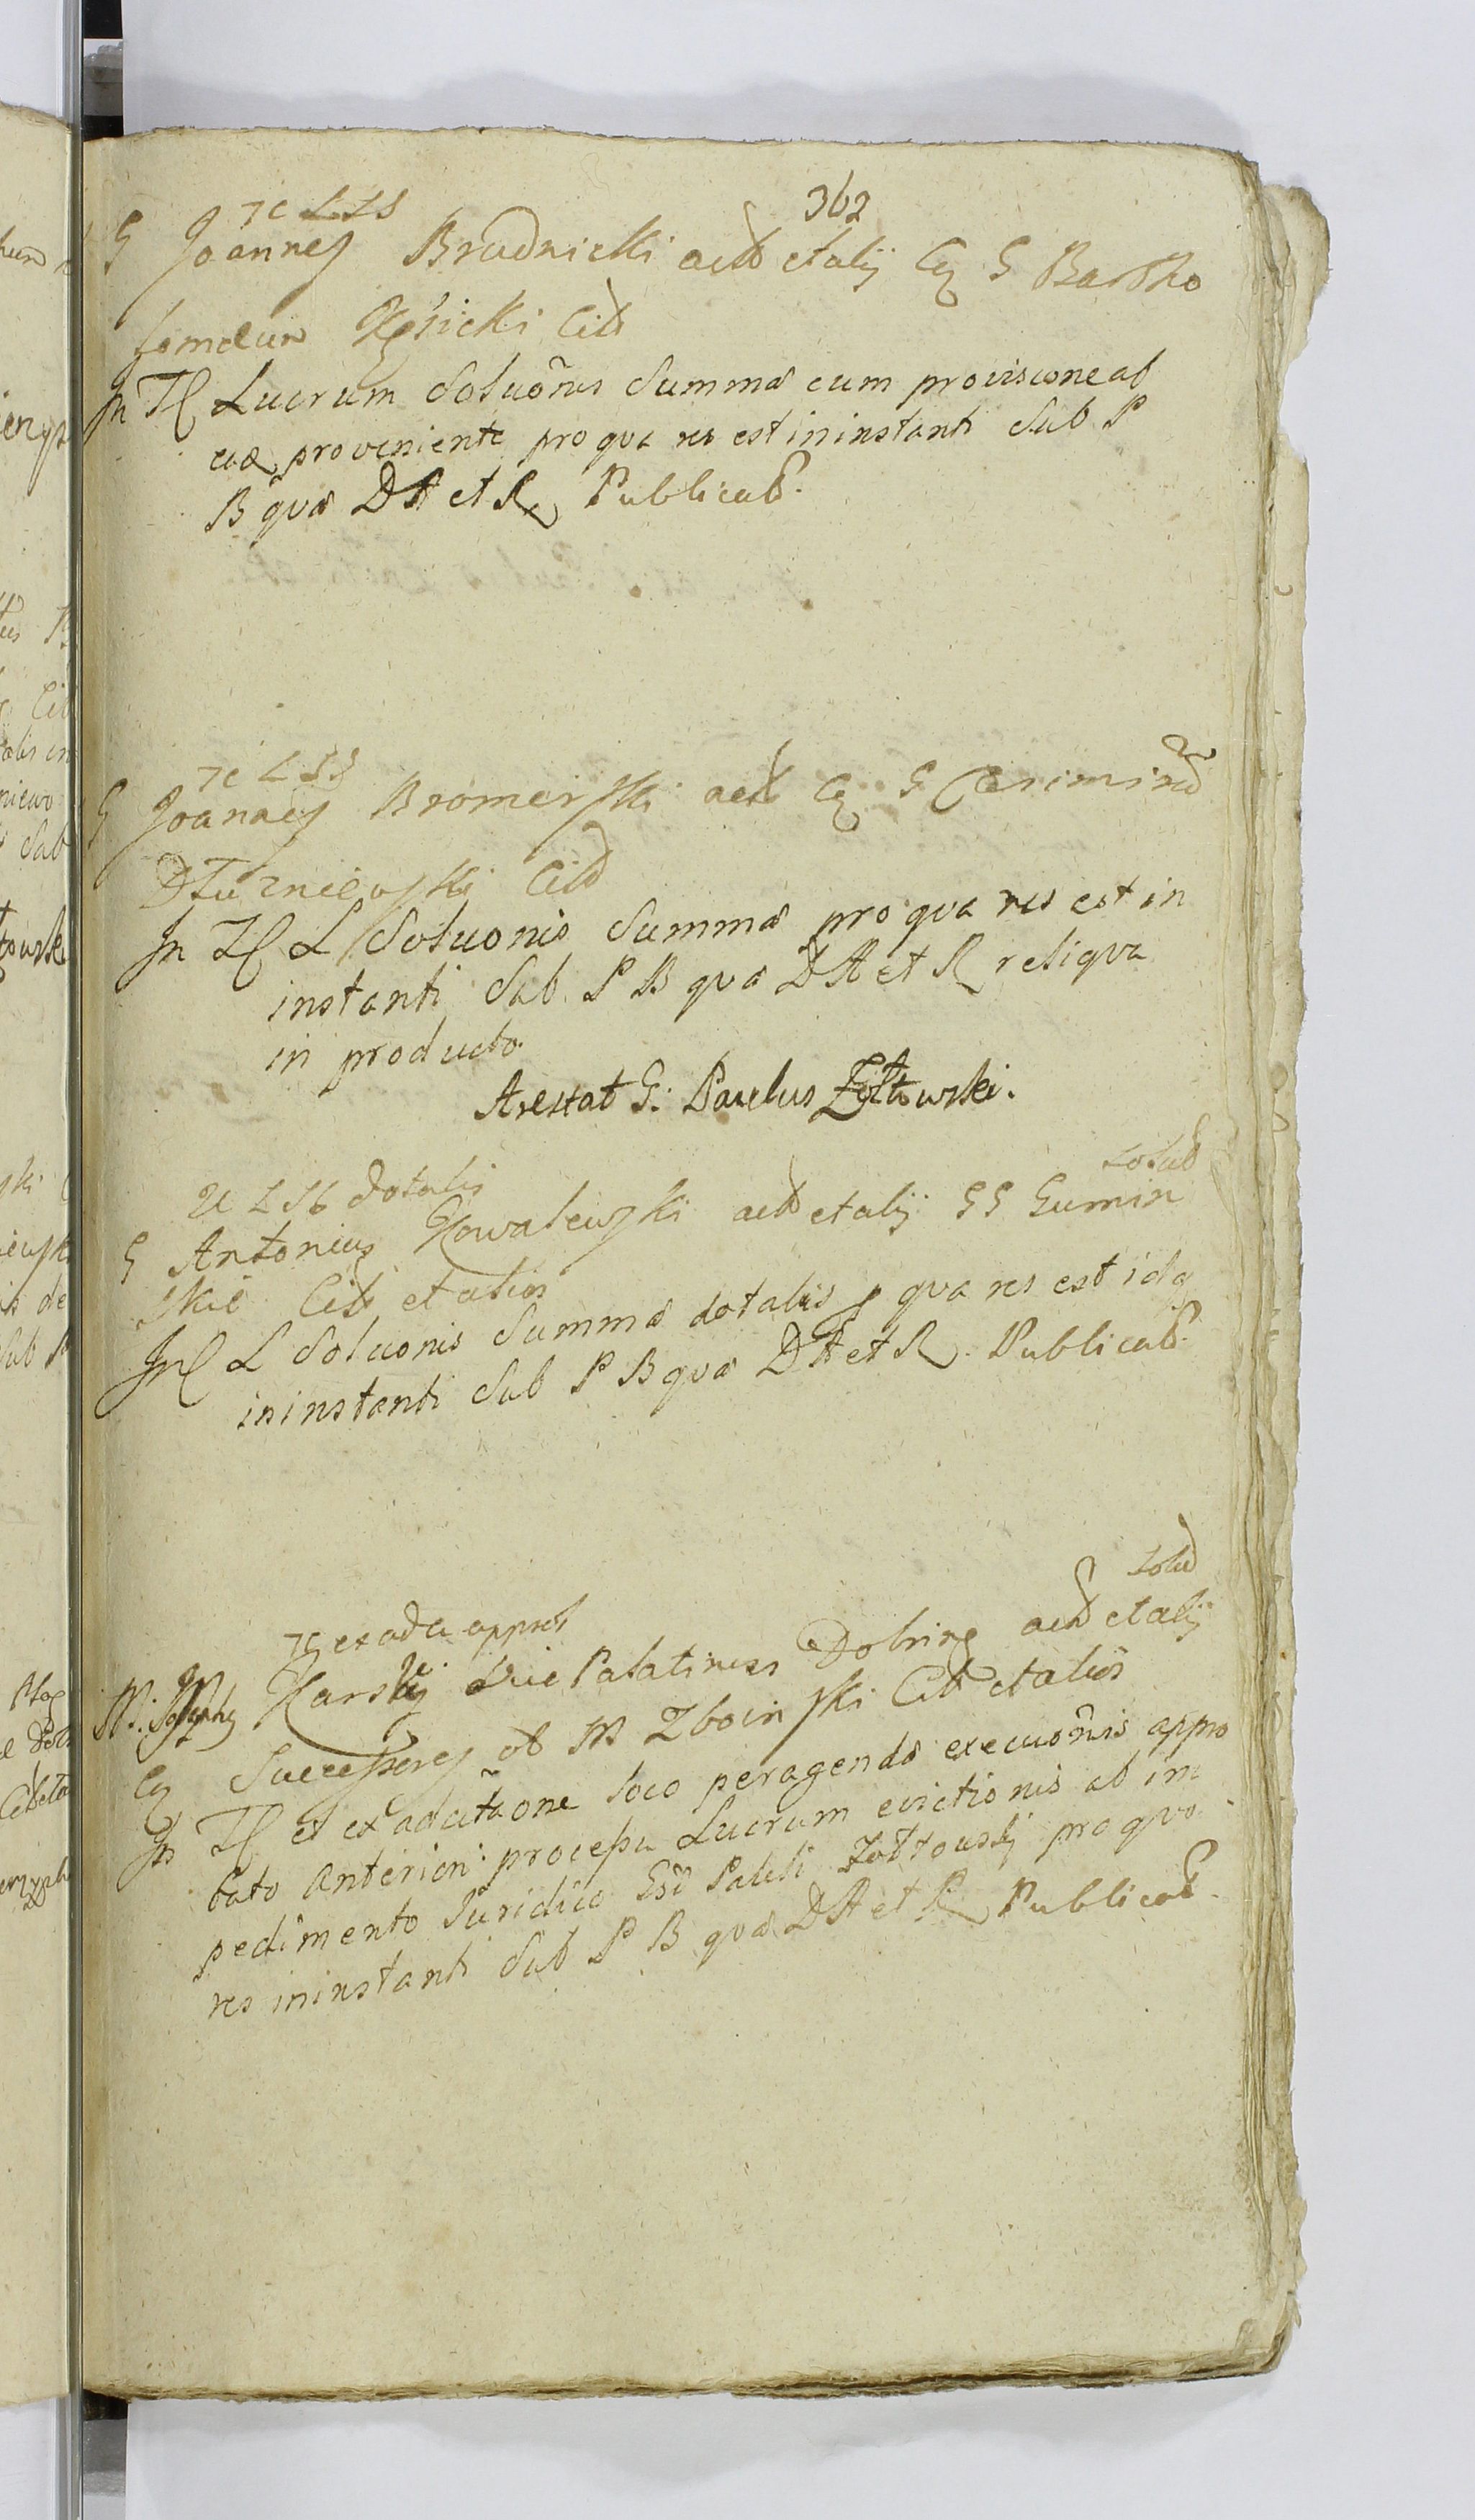 362
7C LSS
G Joannes Brudnicki actd et alij Cq G Bartho
lomeum Kęsicki Citd
In TC Lucrum Soluõnis Summæ cum provisione ab
eade proveniente pro qva res est in instanti Sub P
B qvæ DA et R Publicatd.
7C LSS
G Joannes Bromierski actd Cq G Casimirũ
Dłużniewski Citd
In TC L Soluonis Summæ pro qva res est in
instanti Sub P B qvæ DA et R reliqva
in producto
Arestat G: Paulus Żółtowski.
LSS dotalis
solud
G Antonius Kowalewski actd et alij GG Gumin
skie Citd et alios
In L Soluonis Summæ dotalis p qva res est idq
in instanti Sub P B qvæ DA et R. Publicatd.
7C ex adcit approb
solud
M: Josephq Karskij Vice Palatinus Dobrinę actd et alij
Cq Successores ol M Zboinski Citd et alios
In TC et ex adcitãone loco peragendæ execuõnis appro
bato anteriori processu Lucrum evictionis ab im
pedimento Juridico Gsi Pauli Żołtowskij pro qvo
res in instanti Sub P B qvæ DA et R Publicatd.